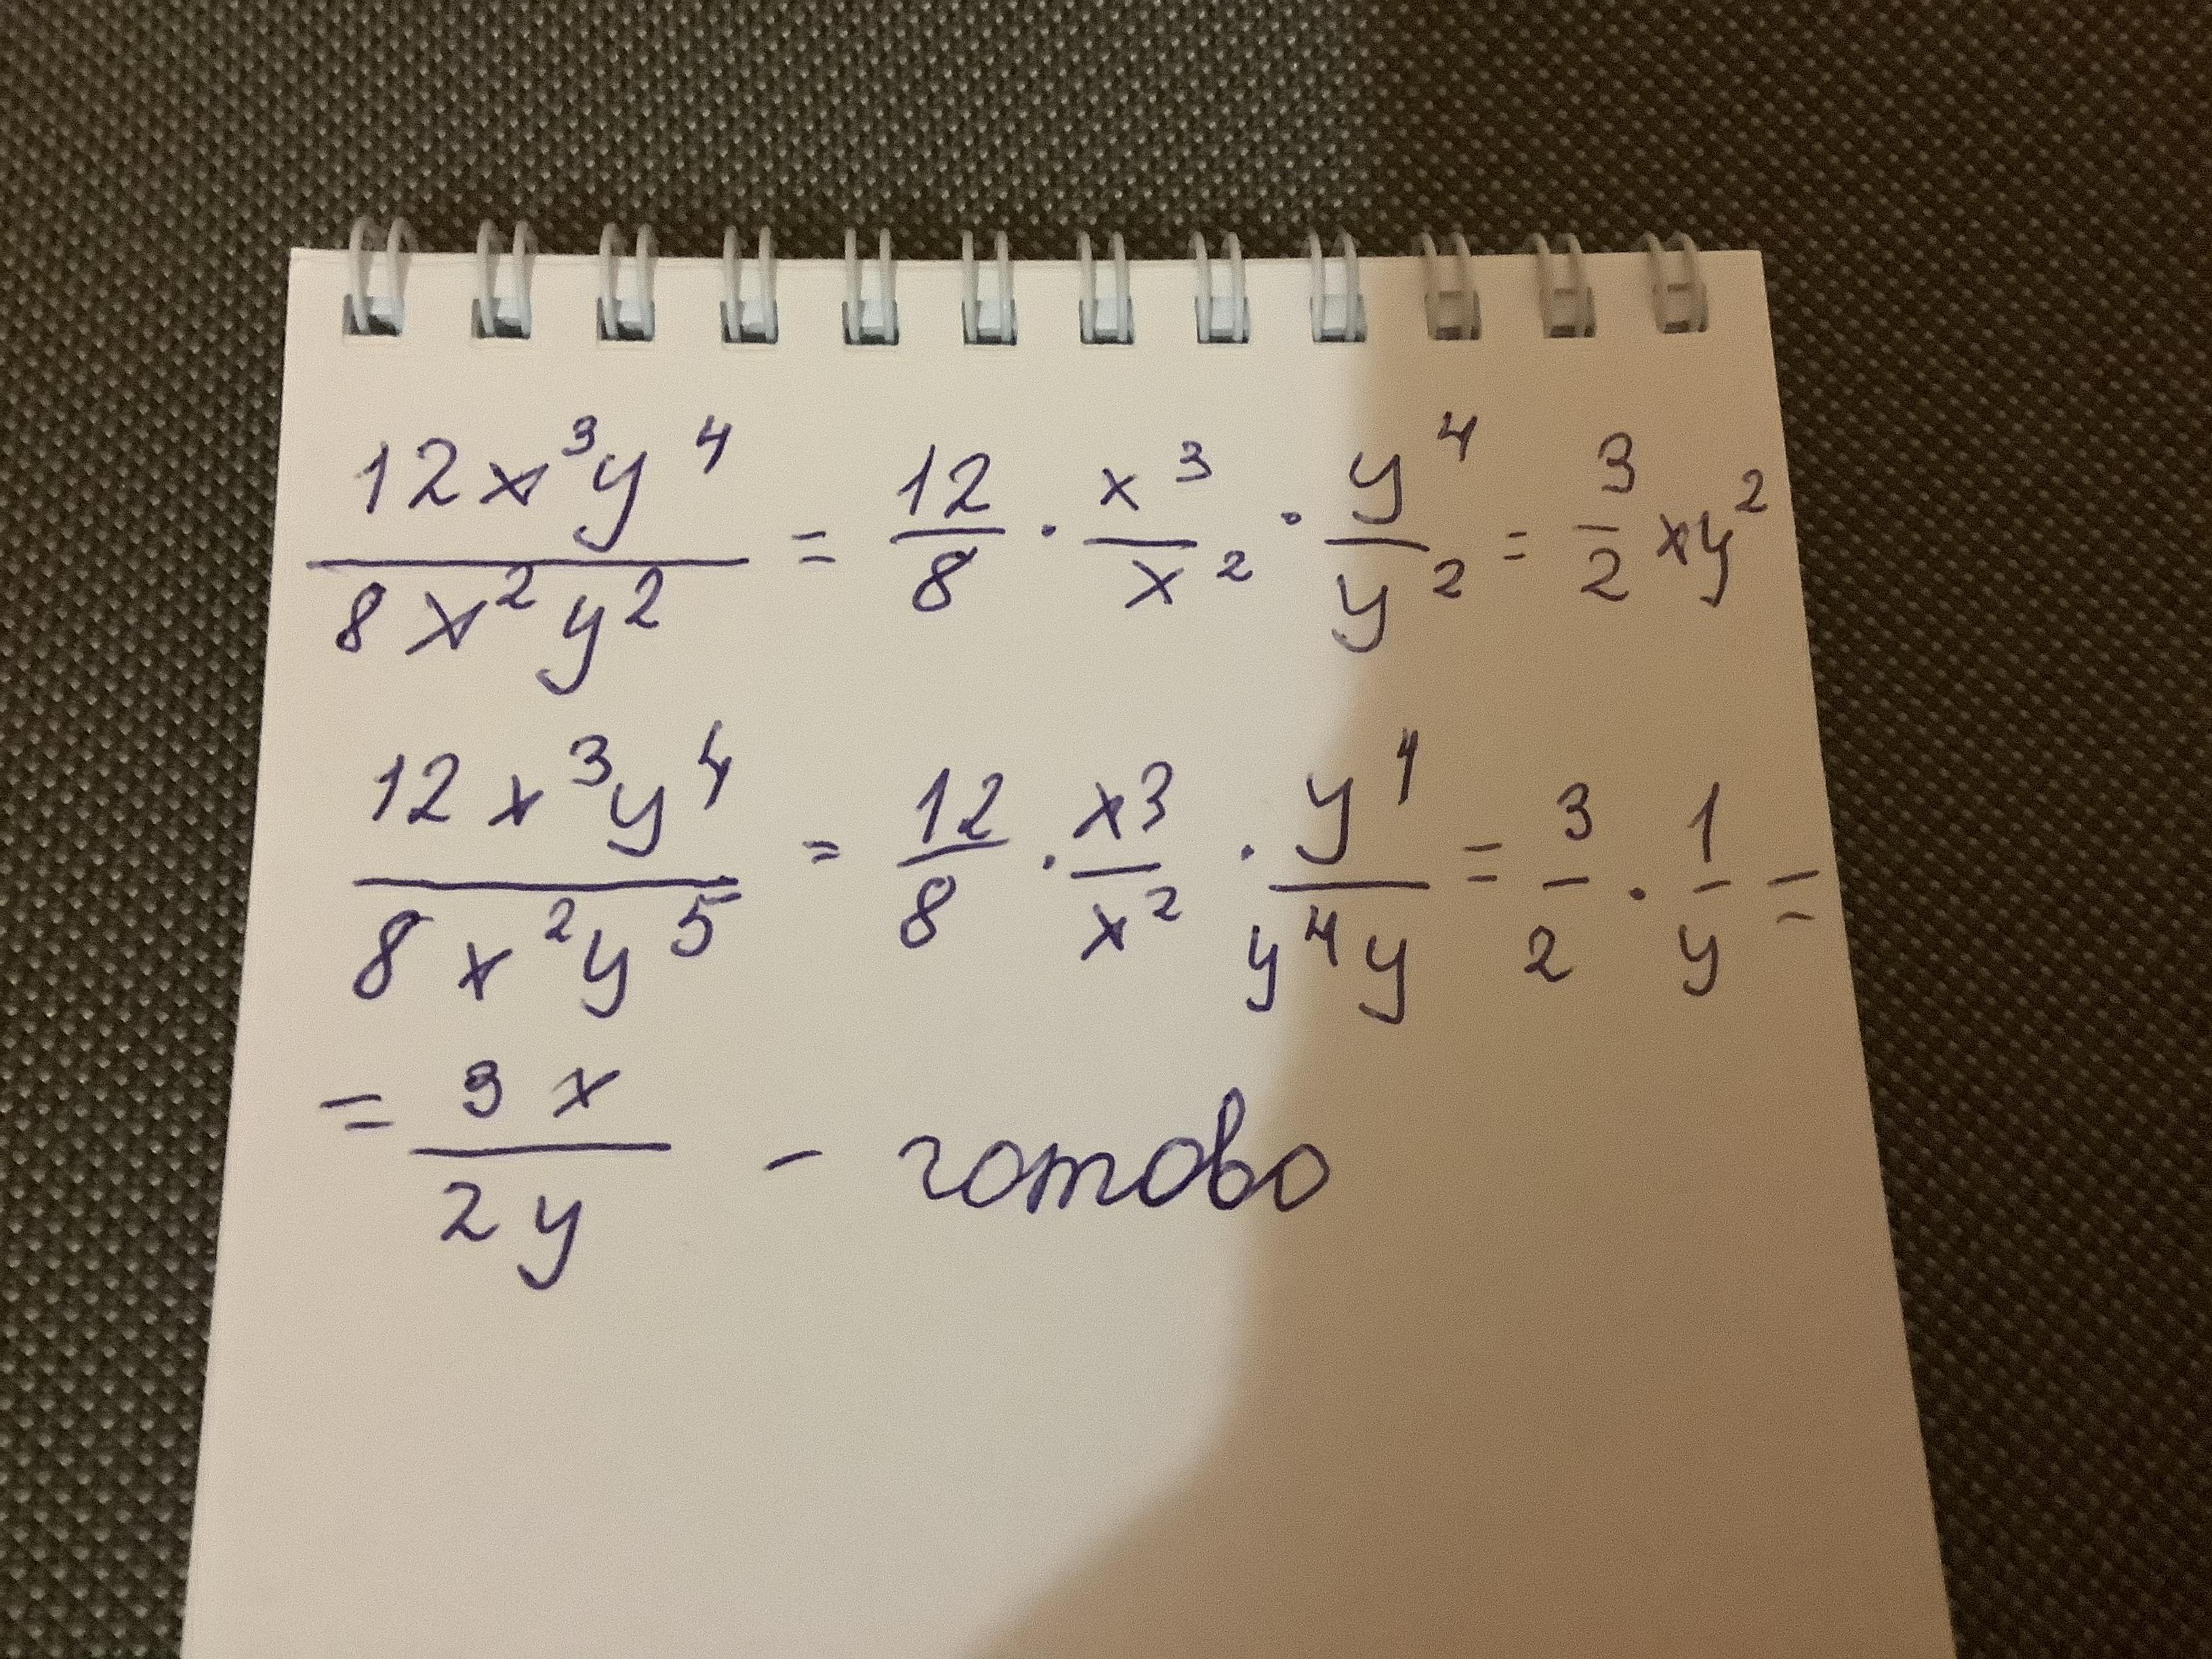 12x³y⁴/8x²y² = 12/8 · x³/x² · y⁴/y² = 3/2 xy²
12x³y⁴/8x²y⁵ = 12/8 · x3/x² · y⁴/y⁴y = 3/2 · 1/y =
= 3x/2y - готово